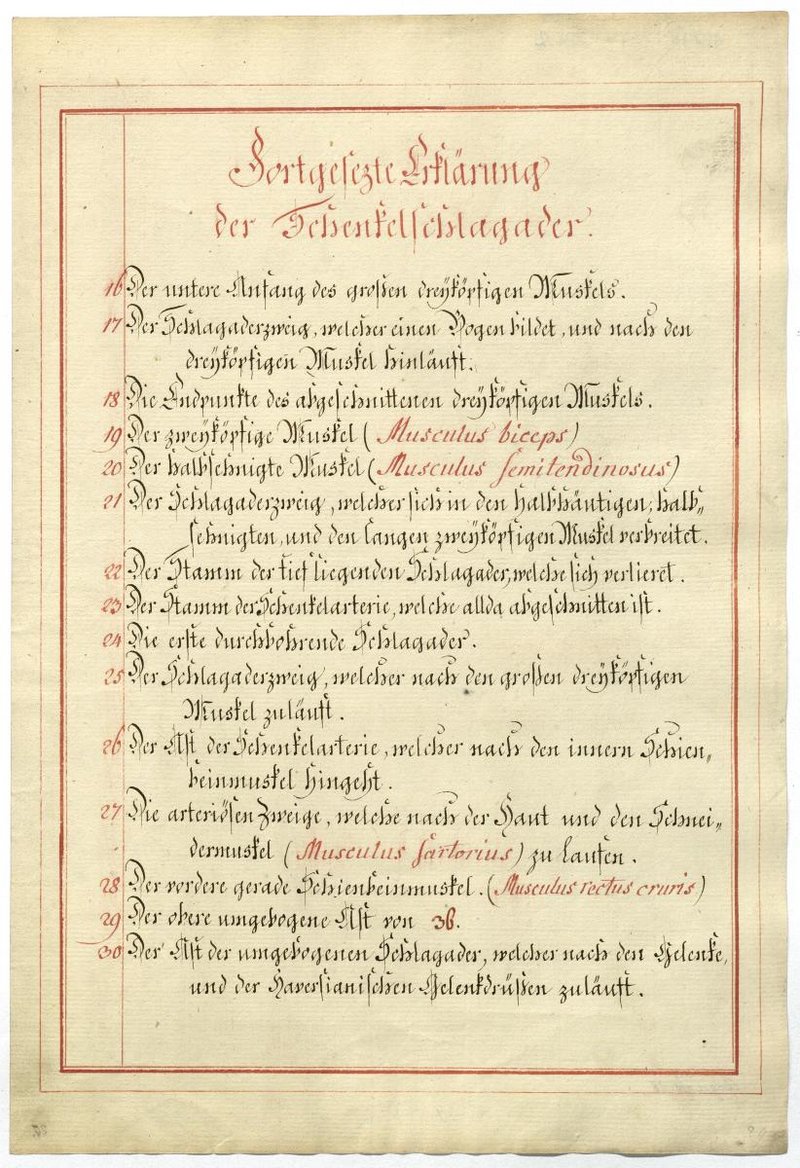 Fortgesezte Erklärung
der Schenkelschlagader.
16 Der untere Anfang des großen dreyköpfigen Muskels.
17 Der Schlagaderzweig, welcher einen Bogen bildet, und nach den
dreyköpfigen Muskel hinläuft.
18 Die Endpunkte des abgeschnittenen dreyköpfigen Muskels.
19 Der zweyköpfige Muskel (Musculus biceps)
20 Der halbsehnigte Muskel (Musculus semitendinosus)
21 Der Schlagaderzweig, welcher sich in den halbhäutigen, halb„
sehnigten, und den langen zweyköpfigen Muskel verbreitet.
22 Der Stamm der tief liegenden Schlagader, welche sich verlieret.
23 Der Stamm der Schenkelarterie, welche allda abgeschnitten ist.
24 Die erste durchbohrende Schlagader.
25 Der Schlagaderzweig, welcher nach den großen dreyköpfigen
Muskel zuläuft.
26 Der Ast der Schenkelarterie, welcher nach den innern Schien„
beinmuskel hingeht.
27 Die arteriösen Zweige, welche nach der Haut und den Schnei„
dermuskel (Musculus sartorius) zu laufen.
28 Der vordere gerade Schienbeinmuskel. (Musculus rectus cruris)
29 Der obere umgebogene Ast von 36.
30 Der Ast der umgebogenen Schlagader, welcher nach den Gelenke,
und der Haversianischen Gelenkdrüßen zuläuft.